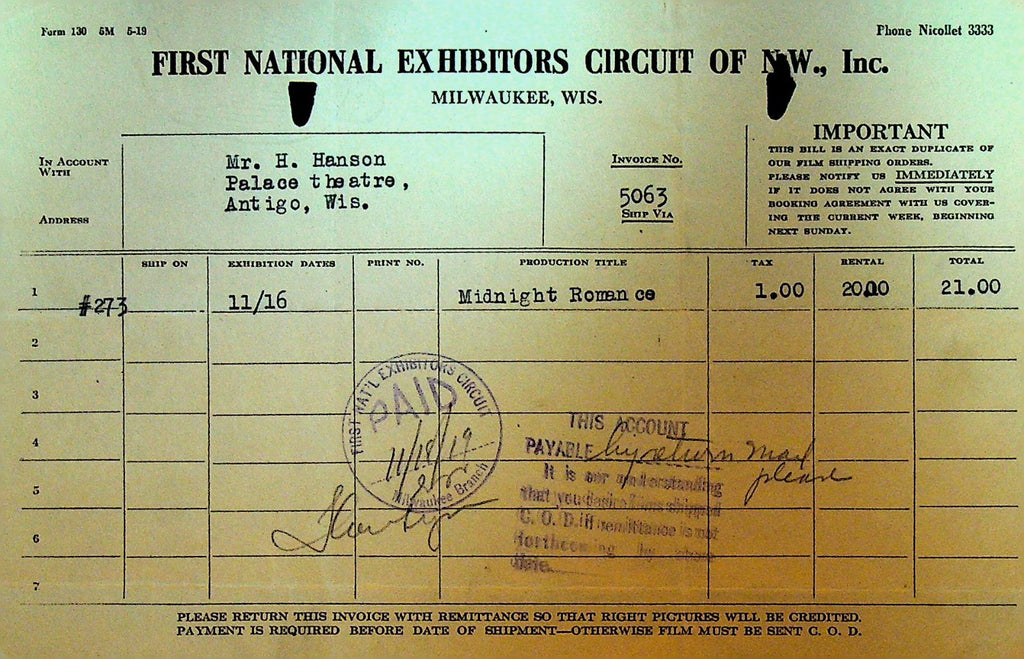 Form 130 5M 5-19
Phone Nicollet 3333
FIRST NATIONAL EXHIBITORS CIRCUIT OF N.W., Inc.
MILWAUKEE, WIS.
IN ACCOUNT
WITH
Mr. H. Hanson
Palace theatre,
Antigo, Wis.
ADDRESS
INVOICE NO.
5063
SHIP VIA
IMPORTANT
THIS BILL IS AN EXACT DUPLICATE OF
OUR FILM SHIPPING ORDERS.
PLEASE NOTIFY US IMMEDIATELY
IF IT DOES NOT AGREE WITH YOUR
BOOKING AGREEMENT WITH US COVER-
ING THE CURRENT WEEK, BEGINNING
NEXT SUNDAY.
SHIP ON EXHIBITION DATES PRINT NO. PRODUCTION TITLE TAX RENTAL TOTAL
1 #273 11/16 Midnight Romance 1.00 20.00 21.00
2
3
4
5
6
7
FIRST NAT'L EXHIBITORS CIRCUIT
PAID
11/18/19
Milwaukee Branch
THIS ACCOUNT
PAYABLE by return mail
please
It is our understanding
that you desire films shipped
C. O. D. if remittance is not
forthcoming by above
date.
PLEASE RETURN THIS INVOICE WITH REMITTANCE SO THAT RIGHT PICTURES WILL BE CREDITED.
PAYMENT IS REQUIRED BEFORE DATE OF SHIPMENT—OTHERWISE FILM MUST BE SENT C. O. D.